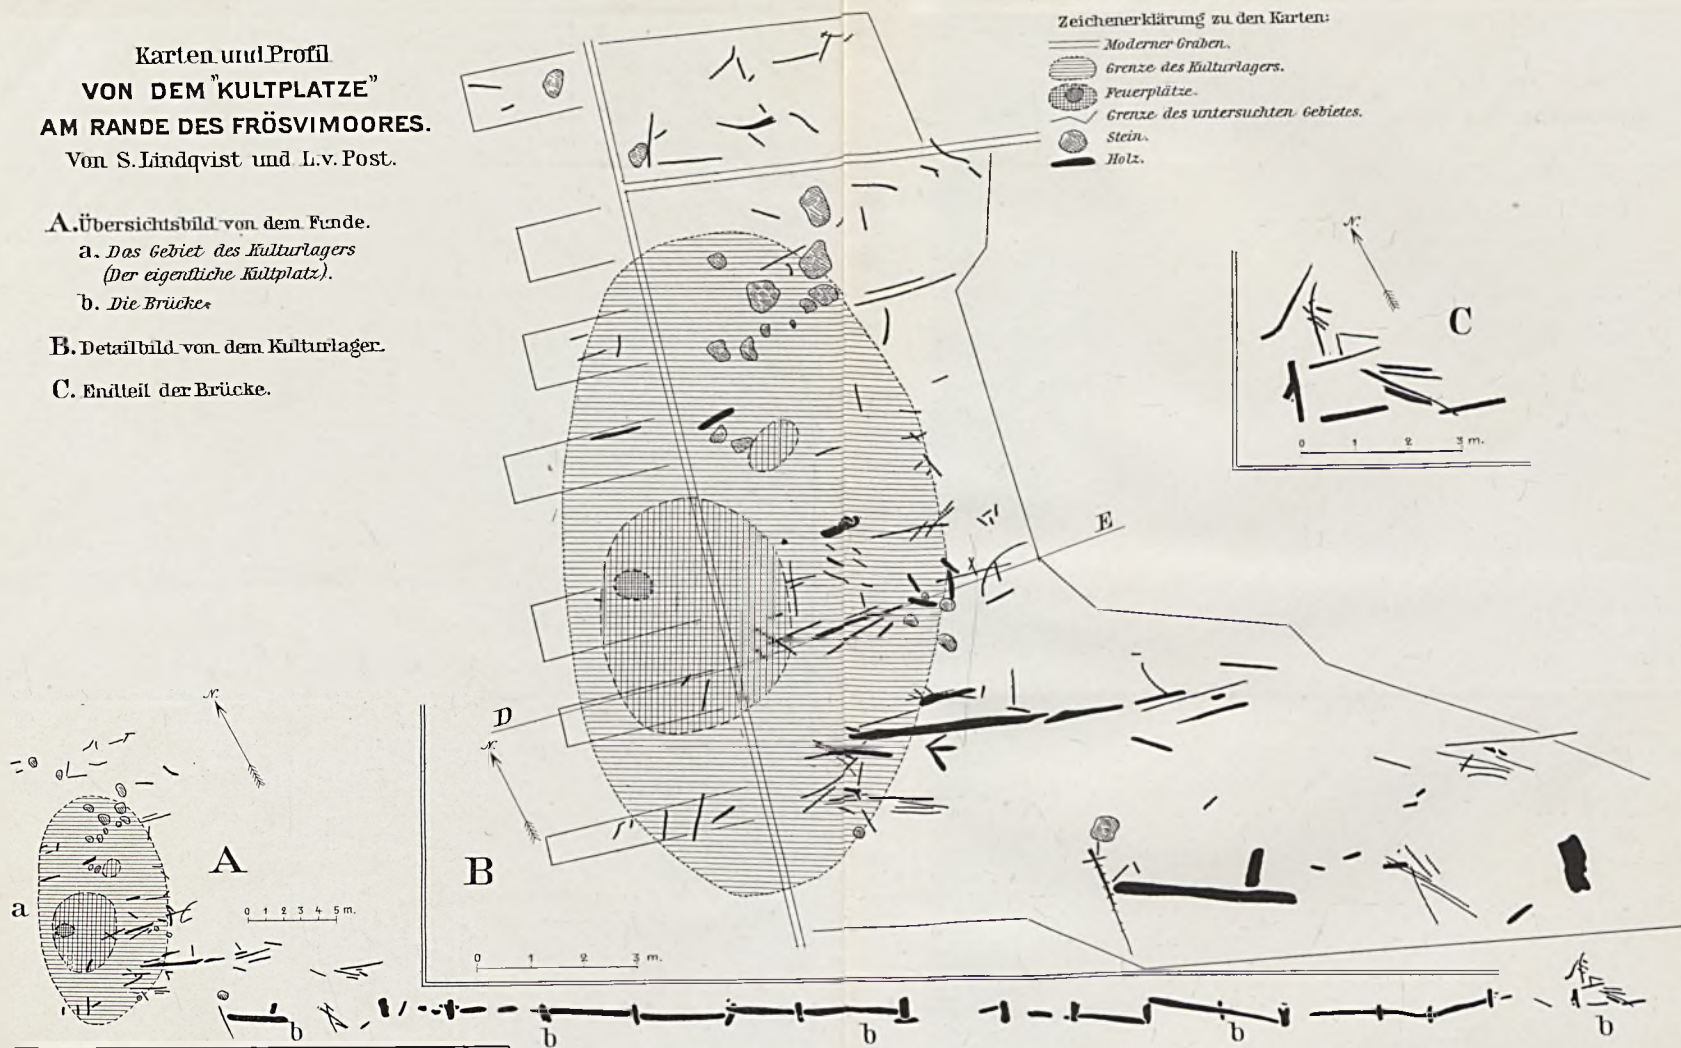 Karten und Profil
VON DEM "KULTPLATZE"
AM RANDE DES FRÖSVIMOORES.
Von S. Lindqvist und L. v. Post.
A. Übersichtsbild von dem Funde.
a. Das Gebiet des Kulturlagers
(Der eigentliche Kultplatz).
b. Die Brücke.
B. Detailbild von dem Kulturlager.
C. Endteil der Brücke.
Zeichenerklärung zu den Karten:
Moderner Graben.
Grenze des Kulturlagers.
Feuerplätze.
Grenze des untersuchten Gebietes.
Stein.
Holz.
N.
C
0 1 2 3 m.
E
D
N.
B
0 1 2 3 m.
N.
A
a
0 1 2 3 4 5 m.
b
b
b
b
b